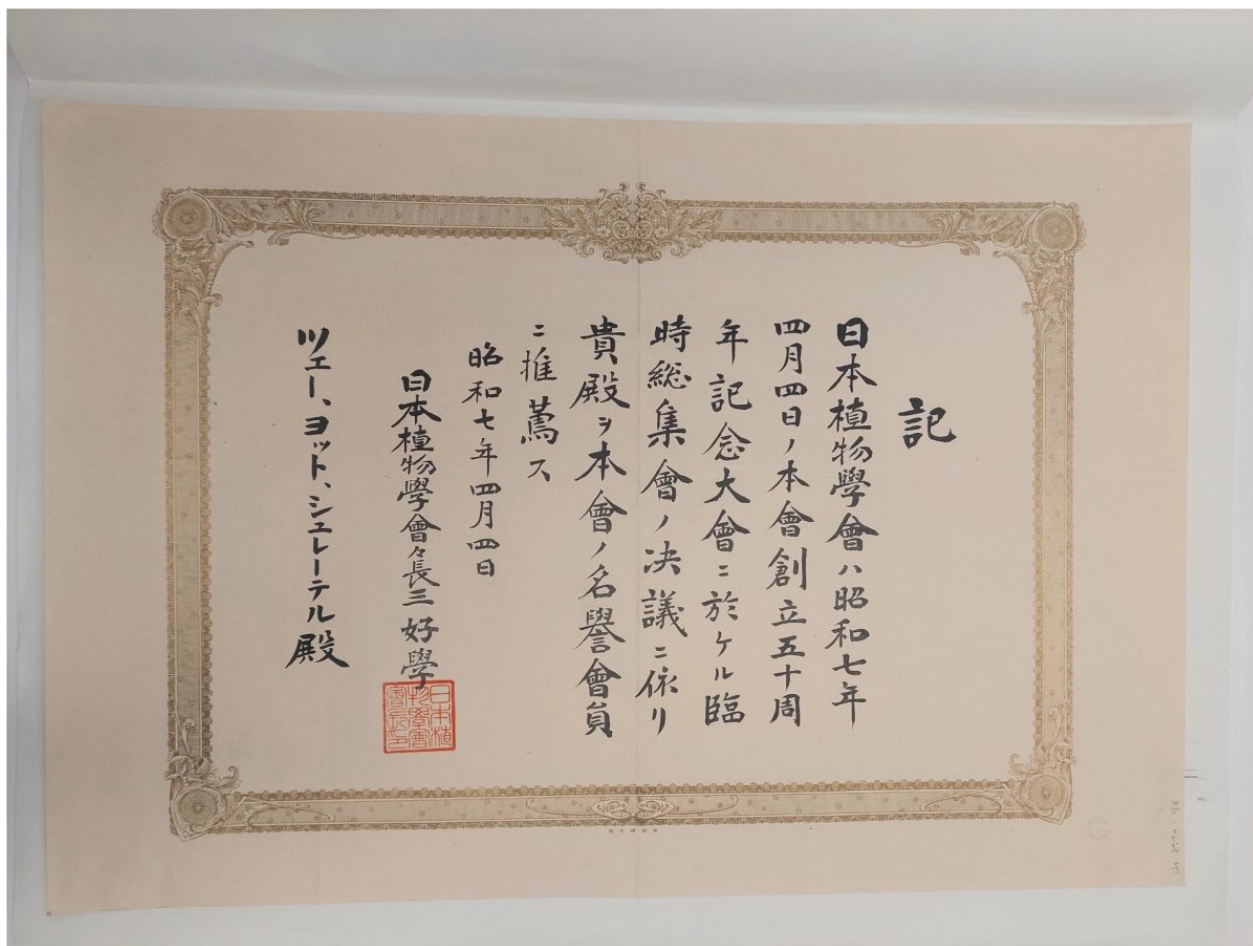 記
日本植物學會ハ昭和七年
四月四日ノ本會創立五十周
年記念大會ニ於ケル臨
時総集會ノ决議ニ依リ
貴殿ヲ本會ノ名譽會員
ニ推薦ス
昭和七年四月四日
日本植物學會々長三好學
日本植
物學會
會長之印
ツェー、ヨット、シュレーテル殿